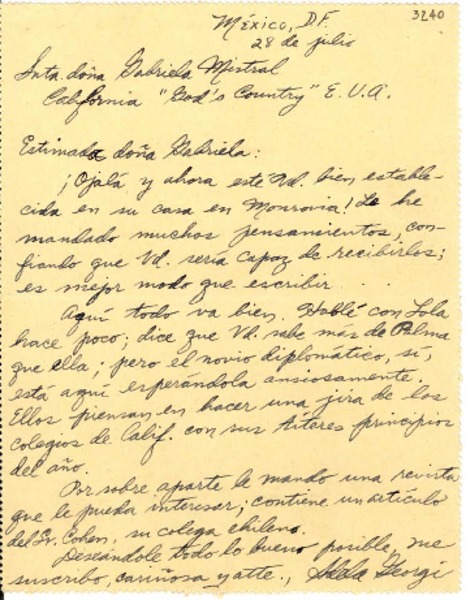 México, D.F.
3240
28 de julio
Srita. doña Gabriela Mistral
California "God's Country" E.U.A.
Estimada doña Gabriela:
¡Ojalá y ahora esté Ud. bien estable-
cida en su casa en Monrovia! Le he
mandado muchos pensamientos, con-
fiando que Vd. sería capaz de recibirlos;
es mejor modo que escribir . . .
Aquí todo va bien. Hablé con Lola
hace poco; dice que Vd. sabe más de Palma
que ella; pero el novio diplomático, sí,
está aquí esperándola ansiosamente.
Ellos piensan en hacer una jira de los
colegios de Calif. con sus títeres principios
del año.
Por sobre aparte le mando una revista
que le pueda interesar; contiene un artículo
del Sr. Cohen, su colega chileno.
Deseándole todo lo bueno posible, me
suscribo, cariñosa y atte., Georgi